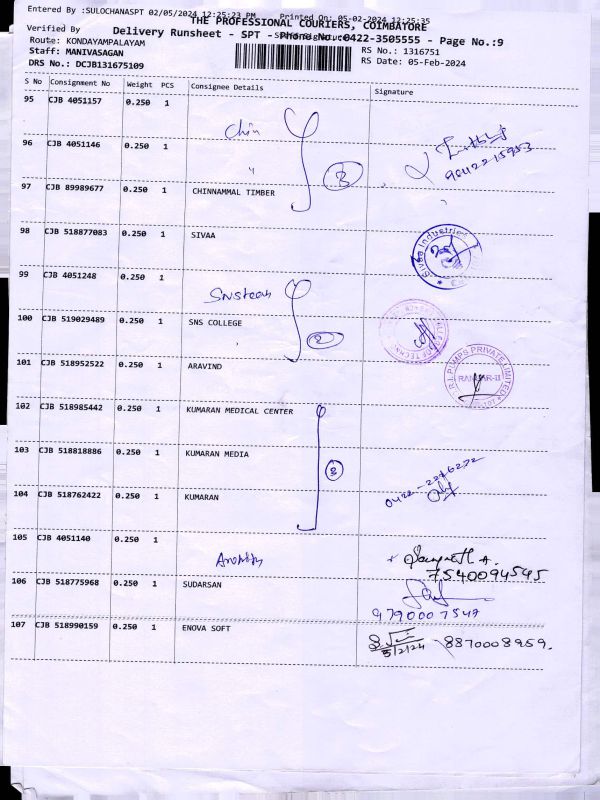 Entered By :SULOCHANASPT 02/05/2024 12:25:23 PM Printed On: 05-02-2024 12:25:35
THE PROFESSIONAL COURIERS, COIMBATORE
Verified By
Delivery Runsheet - SPT - Phone No.:0422-3505555 - Page No.:9
Route: KONDAYAMPALAYAM RS No.: 1316751
Staff: MANIVASAGAN RS Date: 05-Feb-2024
DRS No.: DCJB131675109
S No Consignment No Weight PCS Consignee Details Signature
95 CJB 4051157 0.250 1
Chin
96 CJB 4051146 0.250 1
"
3
97 CJB 89989677 0.250 1 CHINNAMMAL TIMBER
98 CJB 518877083 0.250 1 SIVAA
99 CJB 4051248 0.250 1
100 CJB 519029489 0.250 1 SNS COLLEGE
2
101 CJB 518952522 0.250 1 ARAVIND
R.I. PUMPS PRIVATE LIMITED
102 CJB 518985442 0.250 1 KUMARAN MEDICAL CENTER
103 CJB 518818886 0.250 1 KUMARAN MEDIA
3
0422-2276272
104 CJB 518762422 0.250 1 KUMARAN
105 CJB 4051140 0.250 1
7540094545
106 CJB 518775968 0.250 1 SUDARSAN
9790007549
107 CJB 518990159 0.250 1 ENOVA SOFT
5/2/24 8870008959.